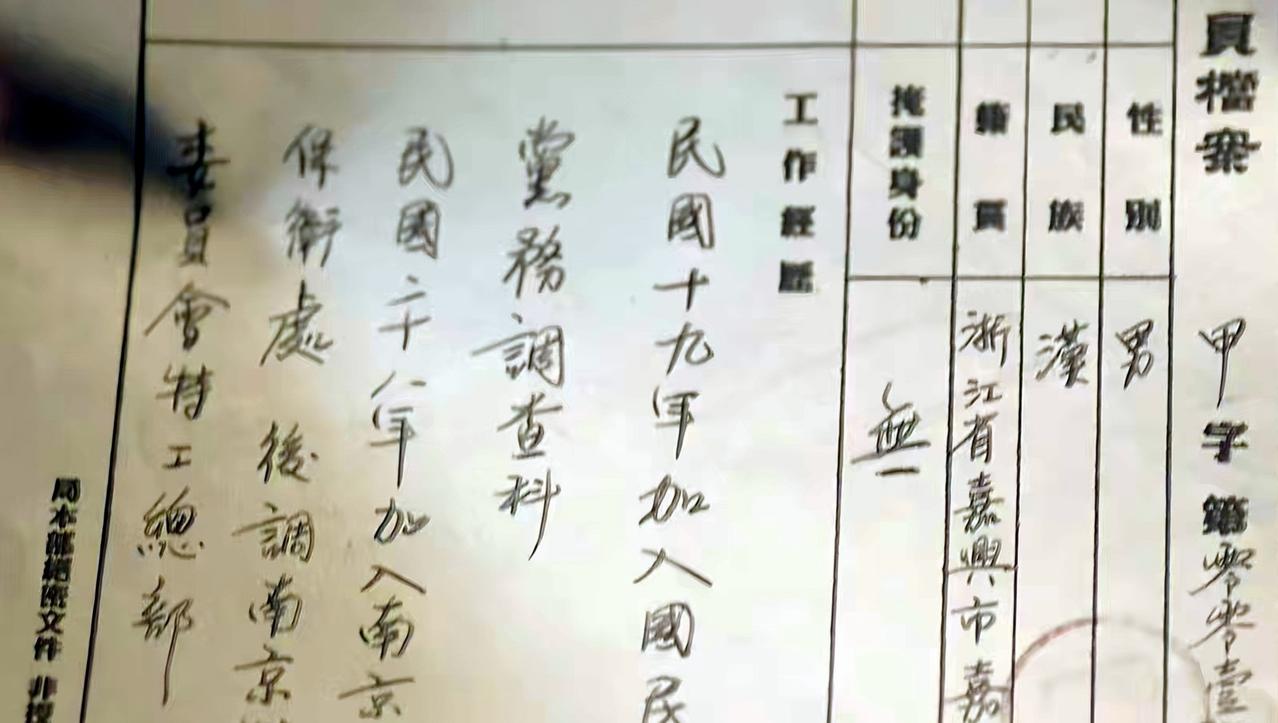 員檔案 甲字第零零壹
性別 男
民族 漢
籍貫 浙江省嘉興市嘉
掩護身份 無
工作經歷
民國十九年加入國民
黨務調查科
民國二十八年加入南京
保衛處 後調南京
委員會特工總部
局本部絕密文件 非授